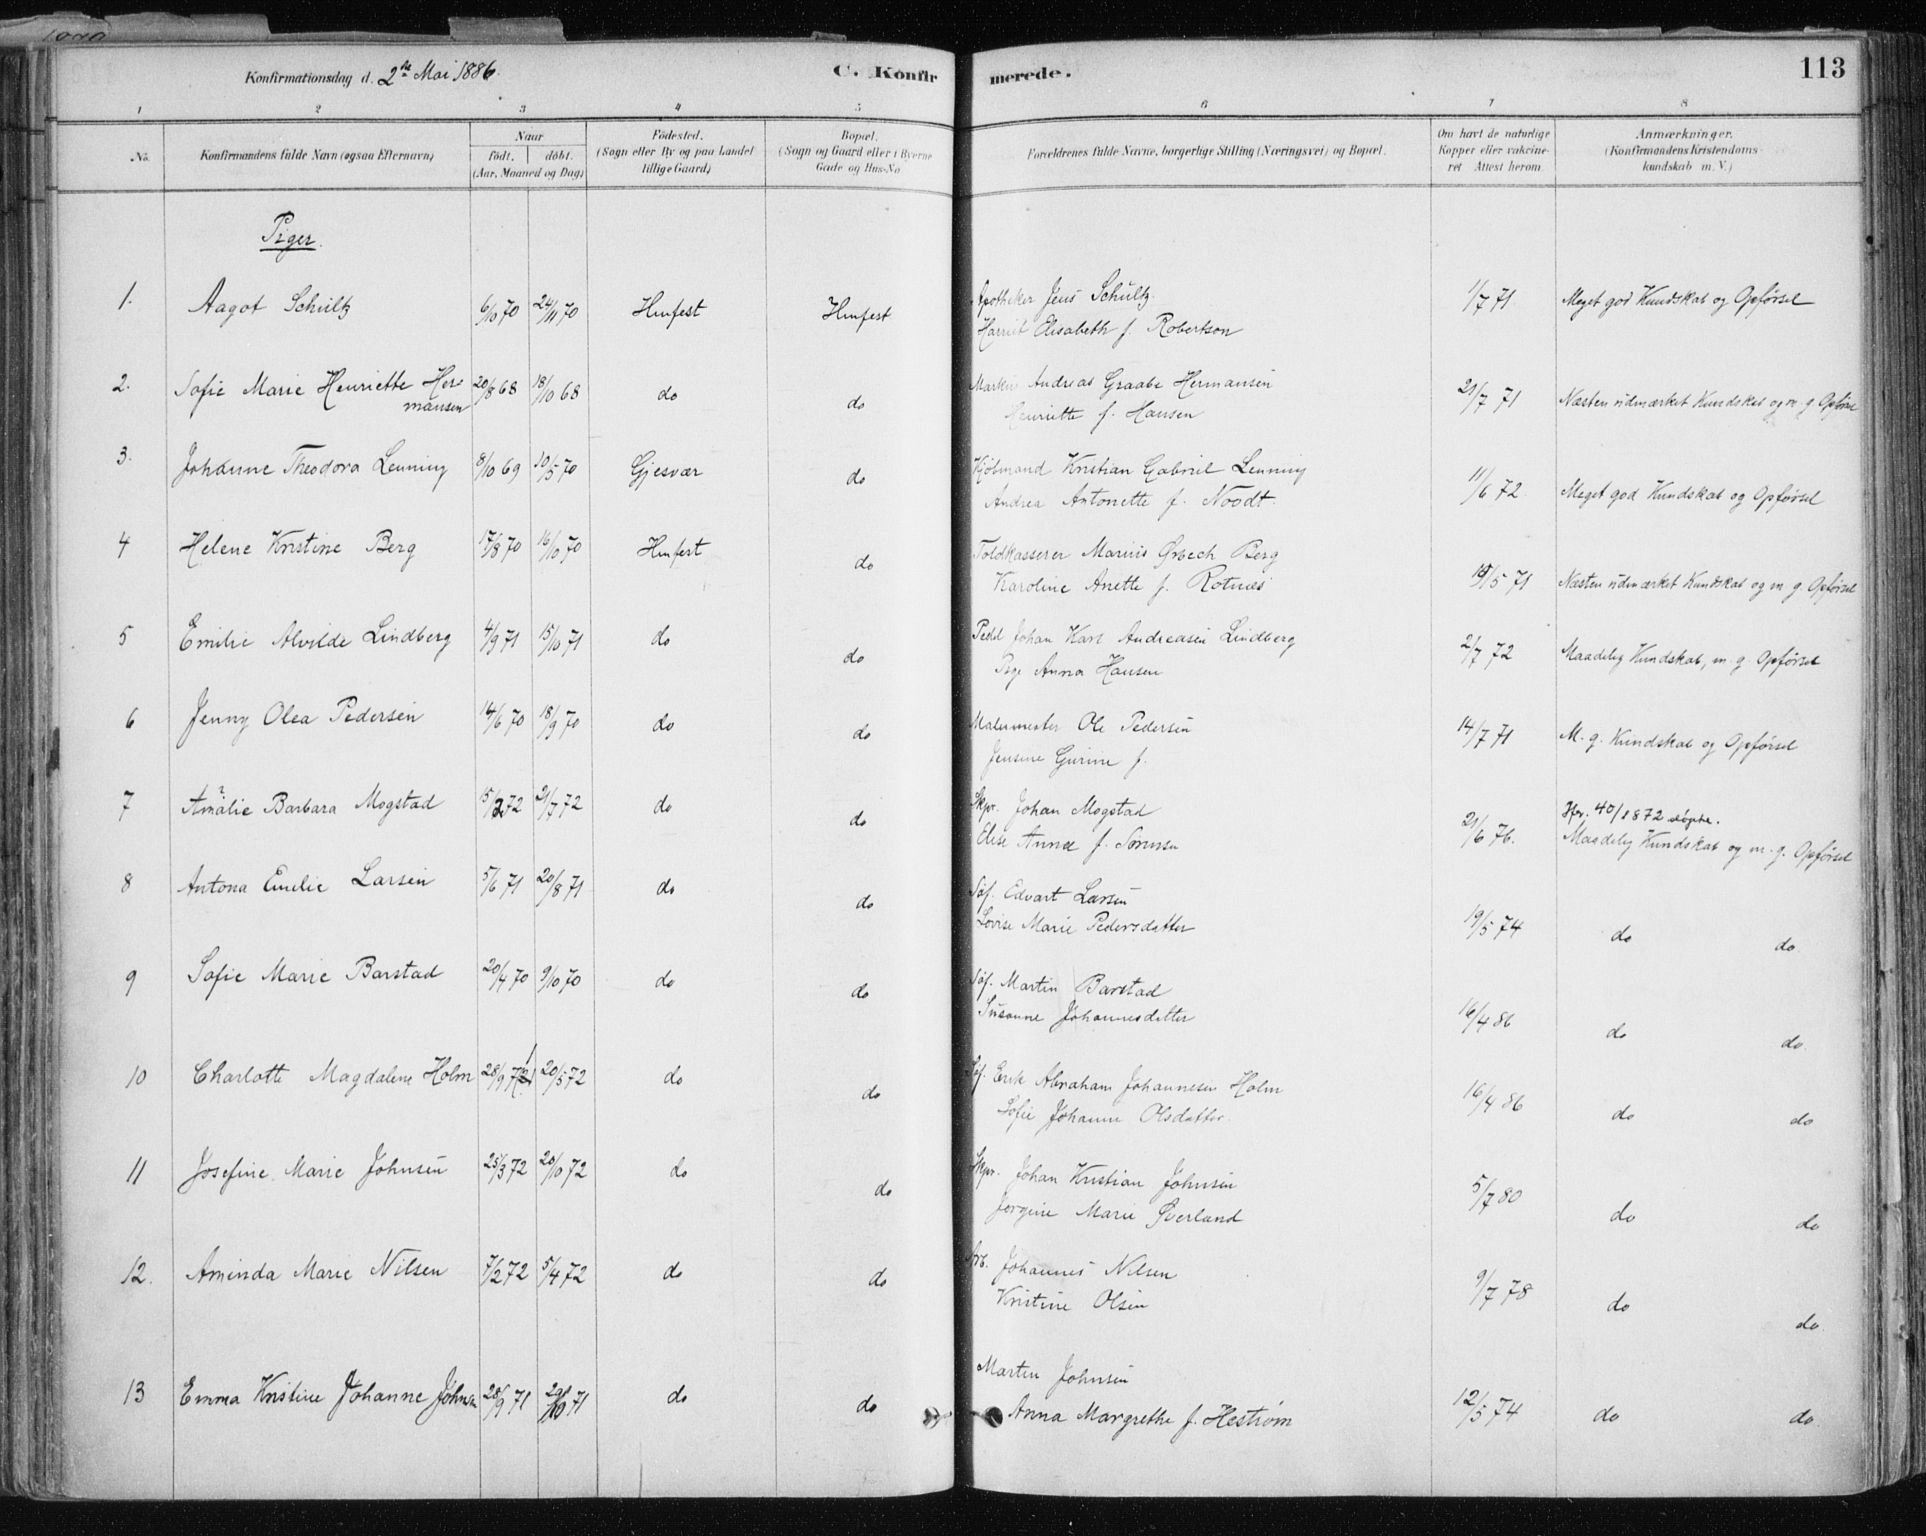 Konfirmationsdag d. 2den Mai 1886.
C. Konfirmerede.
113
1 2 3 4 5 6 7 8
No.
Konfirmandens fulde Navn (ogsaa Efternavn)
Naar
födt. döbt.
(Aar, Maaned og Dag)
Födested.
(Sogn eller By og paa Landet
tillige Gaard)
Bopæl.
(Sogn og Gaard eller i Byerne
Gade og Hus-No
Forældrenes fulde Navne, borgerlige Stilling (Næringsvei) og Bopæl.
Om havt de naturlige
Kopper eller vakcine-
ret Attest herom.
Anmærkninger.
(Konfirmandens Kristendoms-
kundskab m. V.)
Piger.
1. Aagot Schultz 6/10 70 24/11 70 Hmfest Hmfest Apotheker Jens Schultz. 1/7 71. Meget god Kundskab og Opførsel
Harriet Elisabeth f. Robertson
2. Sofie Marie Henriette Her- 20/8 68 18/10 68 do do Andreas Graabe Hermansen 21/7 71 Næsten udmærket Kundskab og m. g. Opførsel
mansen Henriette f. Hansen
3. Johanne Theodora Lenning 8/10 69 10/5 70 Gjesvær do Kjøbmand Kristian Gabriel Lenning 11/6 72 Meget god Kundskab og Opførsel
Andrea Antonette f. Noodt.
4 Helene Kristine Berg 17/8 70 16/10 70 Hmfest do Toldkasserer Marius Ørbech Berg /5 71 Næsten udmærket Kundskab og m. g. Opførsel
Karoline Anette f. Rotnes
5 Emilie Alvilde Lindberg 4/9 71 15/10 71 do do Johan Karl Andreasen Lindberg 2/7 72 Maadelig Kundskab, m. g. Opførsel
Pge Anna Hansen
6 Jenny Olea Pedersen 14/6 70 18/9 70 do do Malermester Ole Pedersen 14/7 71 M. g. Kundskab og Opførsel
Jensine Gurine f.
7 Amalie Barbara Mogstad 15/2 72 21/7 72 do do Skpr. Johan Mogstad 21/6 76. 40/1872 døpte.
Elise Anna f. Sørensen Maadelig Kundskab og m. g. Opførsel
8 Antona Emelie Larsen 5/6 71 20/8 71 do do Søf. Edvart Larsen
Lovise Marie Pedersdatter 19/5 74 do do
9 Sofie Marie Barstad 20/4 70 9/10 70 do do Søf. Martin Barstad
Susanne Johannesdatter 16/4 86 do do
10 Charlotte Magdalene Holm 28/9 71 20/5 72 do do Søf. Erik Abraham Johannesen Holm
Sofie Johanne Olsdatter. 16/4 86 do do
11 Josefine Marie Johnsen 25/3 72 20/10 72 do do Skpr. Johan Kristian Johnsen
Jørgine Marie Øverland 5/7 80 do do
12. Aminda Marie Nilsen 7/2 72 5/4 72 do do Arb. Johannes Nilsen
Kristine Olsen 9/7 78 do do
13 Emma Kristine Johanne Johnsen 28/9 71 29/10 71 do do Martin Johnsen
Anna Margrethe f. Hestrøm 12/5 74 do do